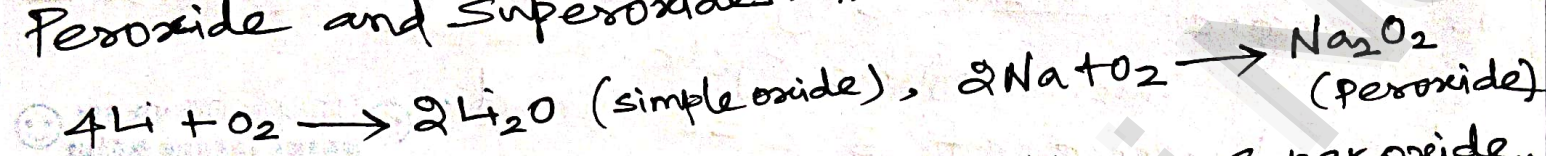 Peroxide and Superoxide
4Li + O₂ ⟶ 2Li₂O (simple oxide), 2Na + O₂ ⟶ Na₂O₂
(peroxide)
peroxide